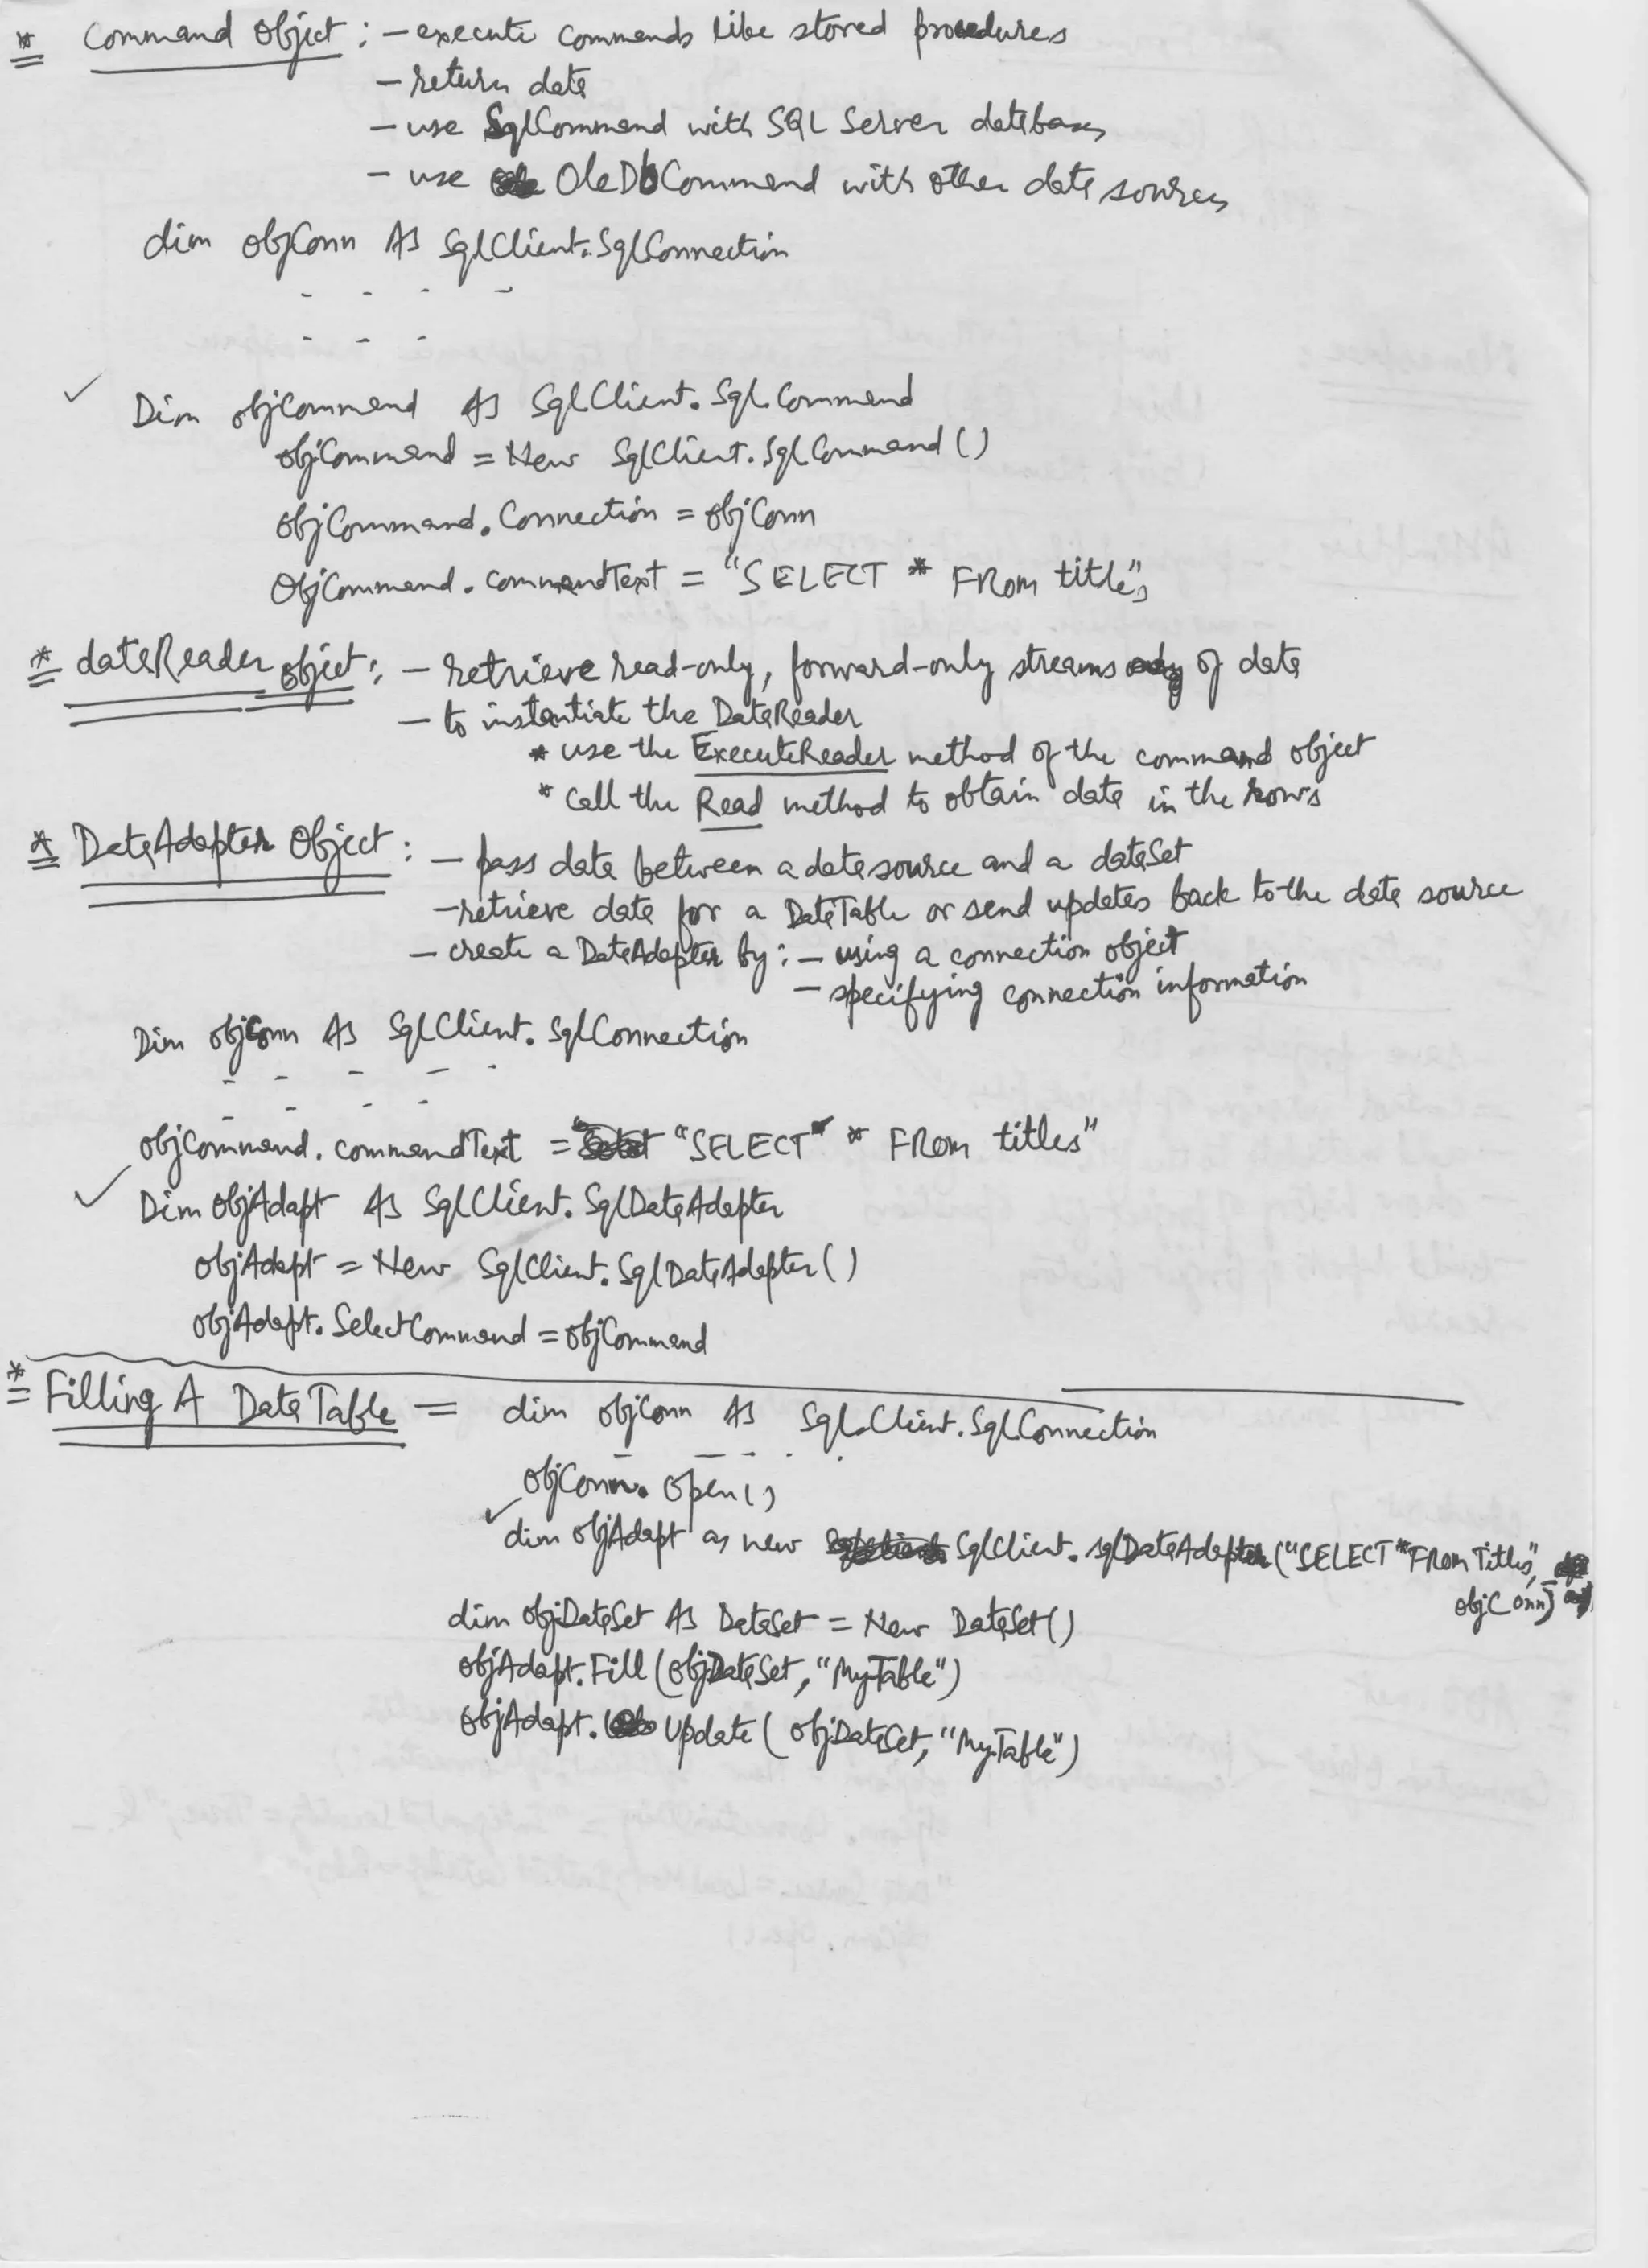 * Command Object : - execute commands like stored procedures
- return data
- use SqlCommand with SQL Server databases
- use OleDbCommand with other data sources
dim objConn As SqlClient.SqlConnection
- - - -
- - -
✓ Dim objCommand As SqlClient.SqlCommand
objCommand = New SqlClient.SqlCommand()
objCommand.Connection = objConn
ObjCommand.commandText = "SELECT * FROM titles"
* dataReader object : - retrieve read-only, forward-only streams of data
- to instantiate the DataReader
* use the ExecuteReader method of the command object
* call the Read method to obtain data in the rows
* DataAdapter Object : - pass data between a data source and a dataSet
- retrieve data for a DataTable or send updates back to the data source
- create a DataAdapter by : - using a connection object
- specifying connection information
Dim objConn As SqlClient.SqlConnection
- - - - -
- - - -
objCommand.commandText = "SELECT" * FROM titles"
✓ Dim objAdapt As SqlClient.SqlDataAdapter
objAdapt = New SqlClient.SqlDataAdapter()
objAdapt.SelectCommand = objCommand
* Filling A DataTable = dim objConn As SqlClient.SqlConnection
- - - - -
objConn.open()
✓ dim objAdapt as new SqlClient.sqlDataAdapter("SELECT * FROM Titles",
objConn)
dim objDataSet As DataSet = New DataSet()
objAdapt.Fill(objDataSet, "MyTable")
objAdapt.Update(objDataSet, "MyTable")